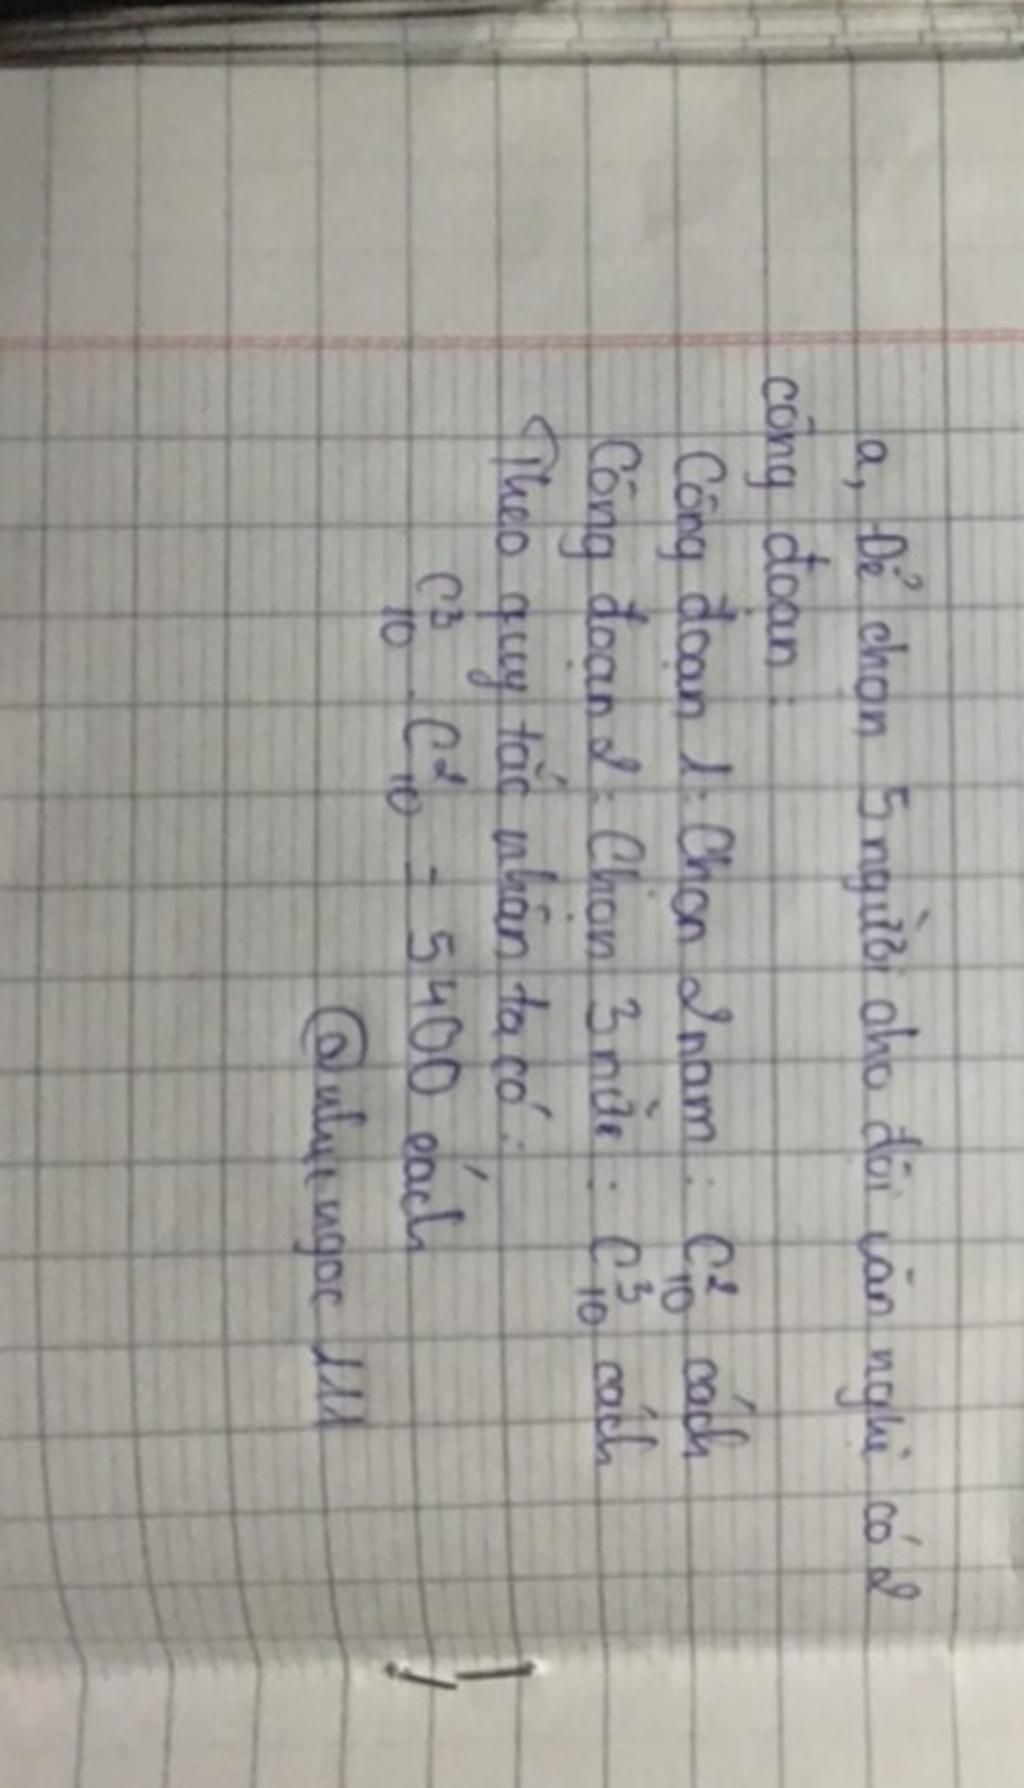 a, Để chọn 5 người cho đội văn nghệ có 2
công đoạn:
Công đoạn 1: Chọn 2 nam: C²₁₀ cách
Công đoạn 2: Chọn 3 nữ: C³₁₀ cách
Theo quy tắc nhân ta có:
C³₁₀ . C²₁₀ = 5400 cách
@nhuingoc 111